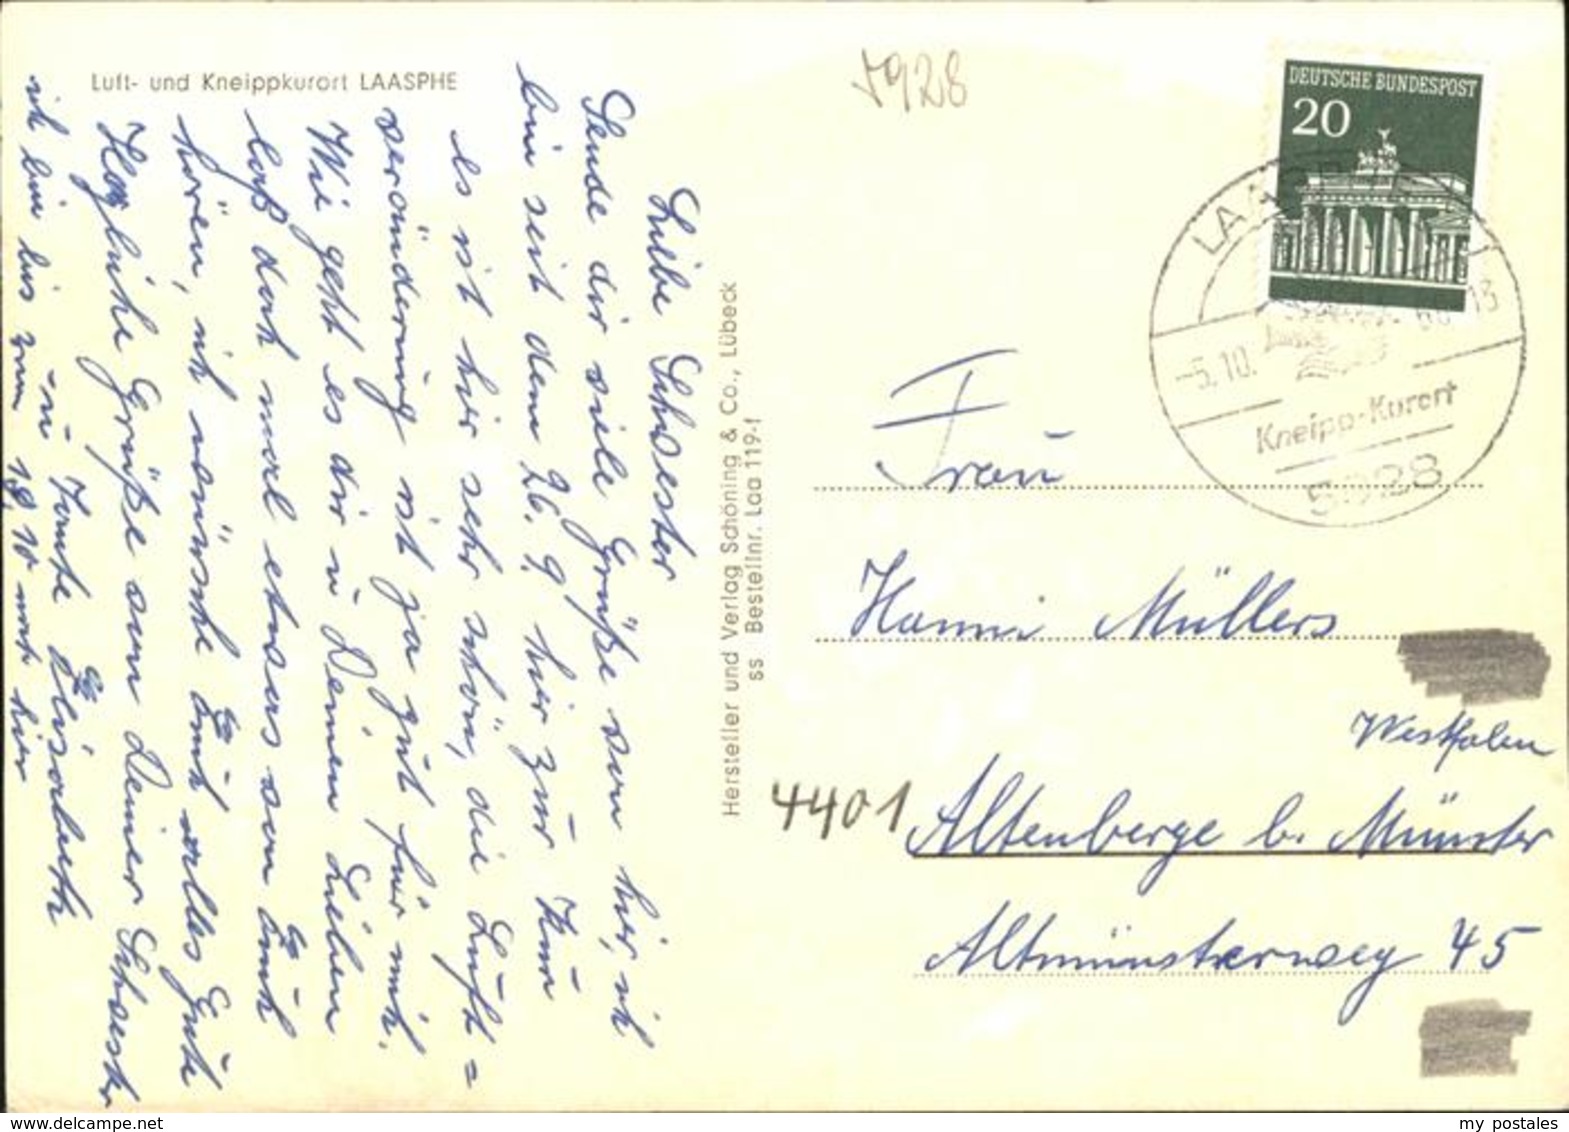 Luft- und Kneippkurort LAASPHE
Liebe Schwester
Sende dir viele Grüße von hier, ich
bin seit dem 26. 9. hier zur Kur
es ist hir sehr schön, die Luft=
veränderung ist ja gut für mich.
Wie geht es dir u Deinen Lieben
laß doch mal etwas von Euch
hören, ich wünsche Euch alles Gute
Herzliche Grüße von Deiner Schwester
u Tante Elisabeth
ich bin bis zum 18. 10 noch hier
Hersteller und Verlag Schöning & Co., Lübeck
ss Bestellnr. Laa 119-f
5928
DEUTSCHE BUNDESPOST
20
LAASPHE
-5.10. 13
Kneipp-Kurort
5928
Frau
Hanni Müllers
Westfalen
4401 Altenberge b. Münster
Altmünsterweg 45
www.delcampe.net
my_postales